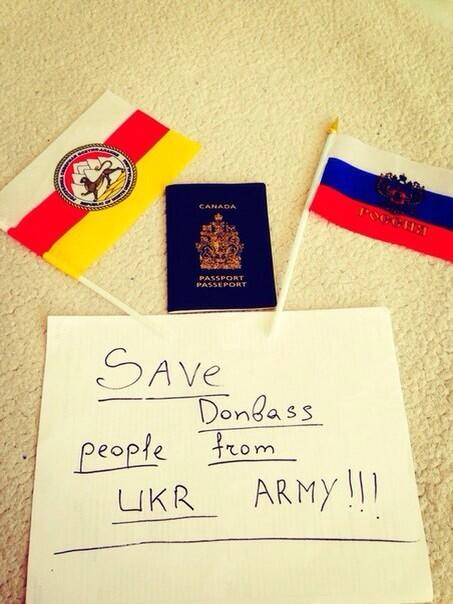 CANADA
PASSPORT
PASSEPORT
РОССИЯ
SAve
Donbass
people from
UKR ARMY!!!